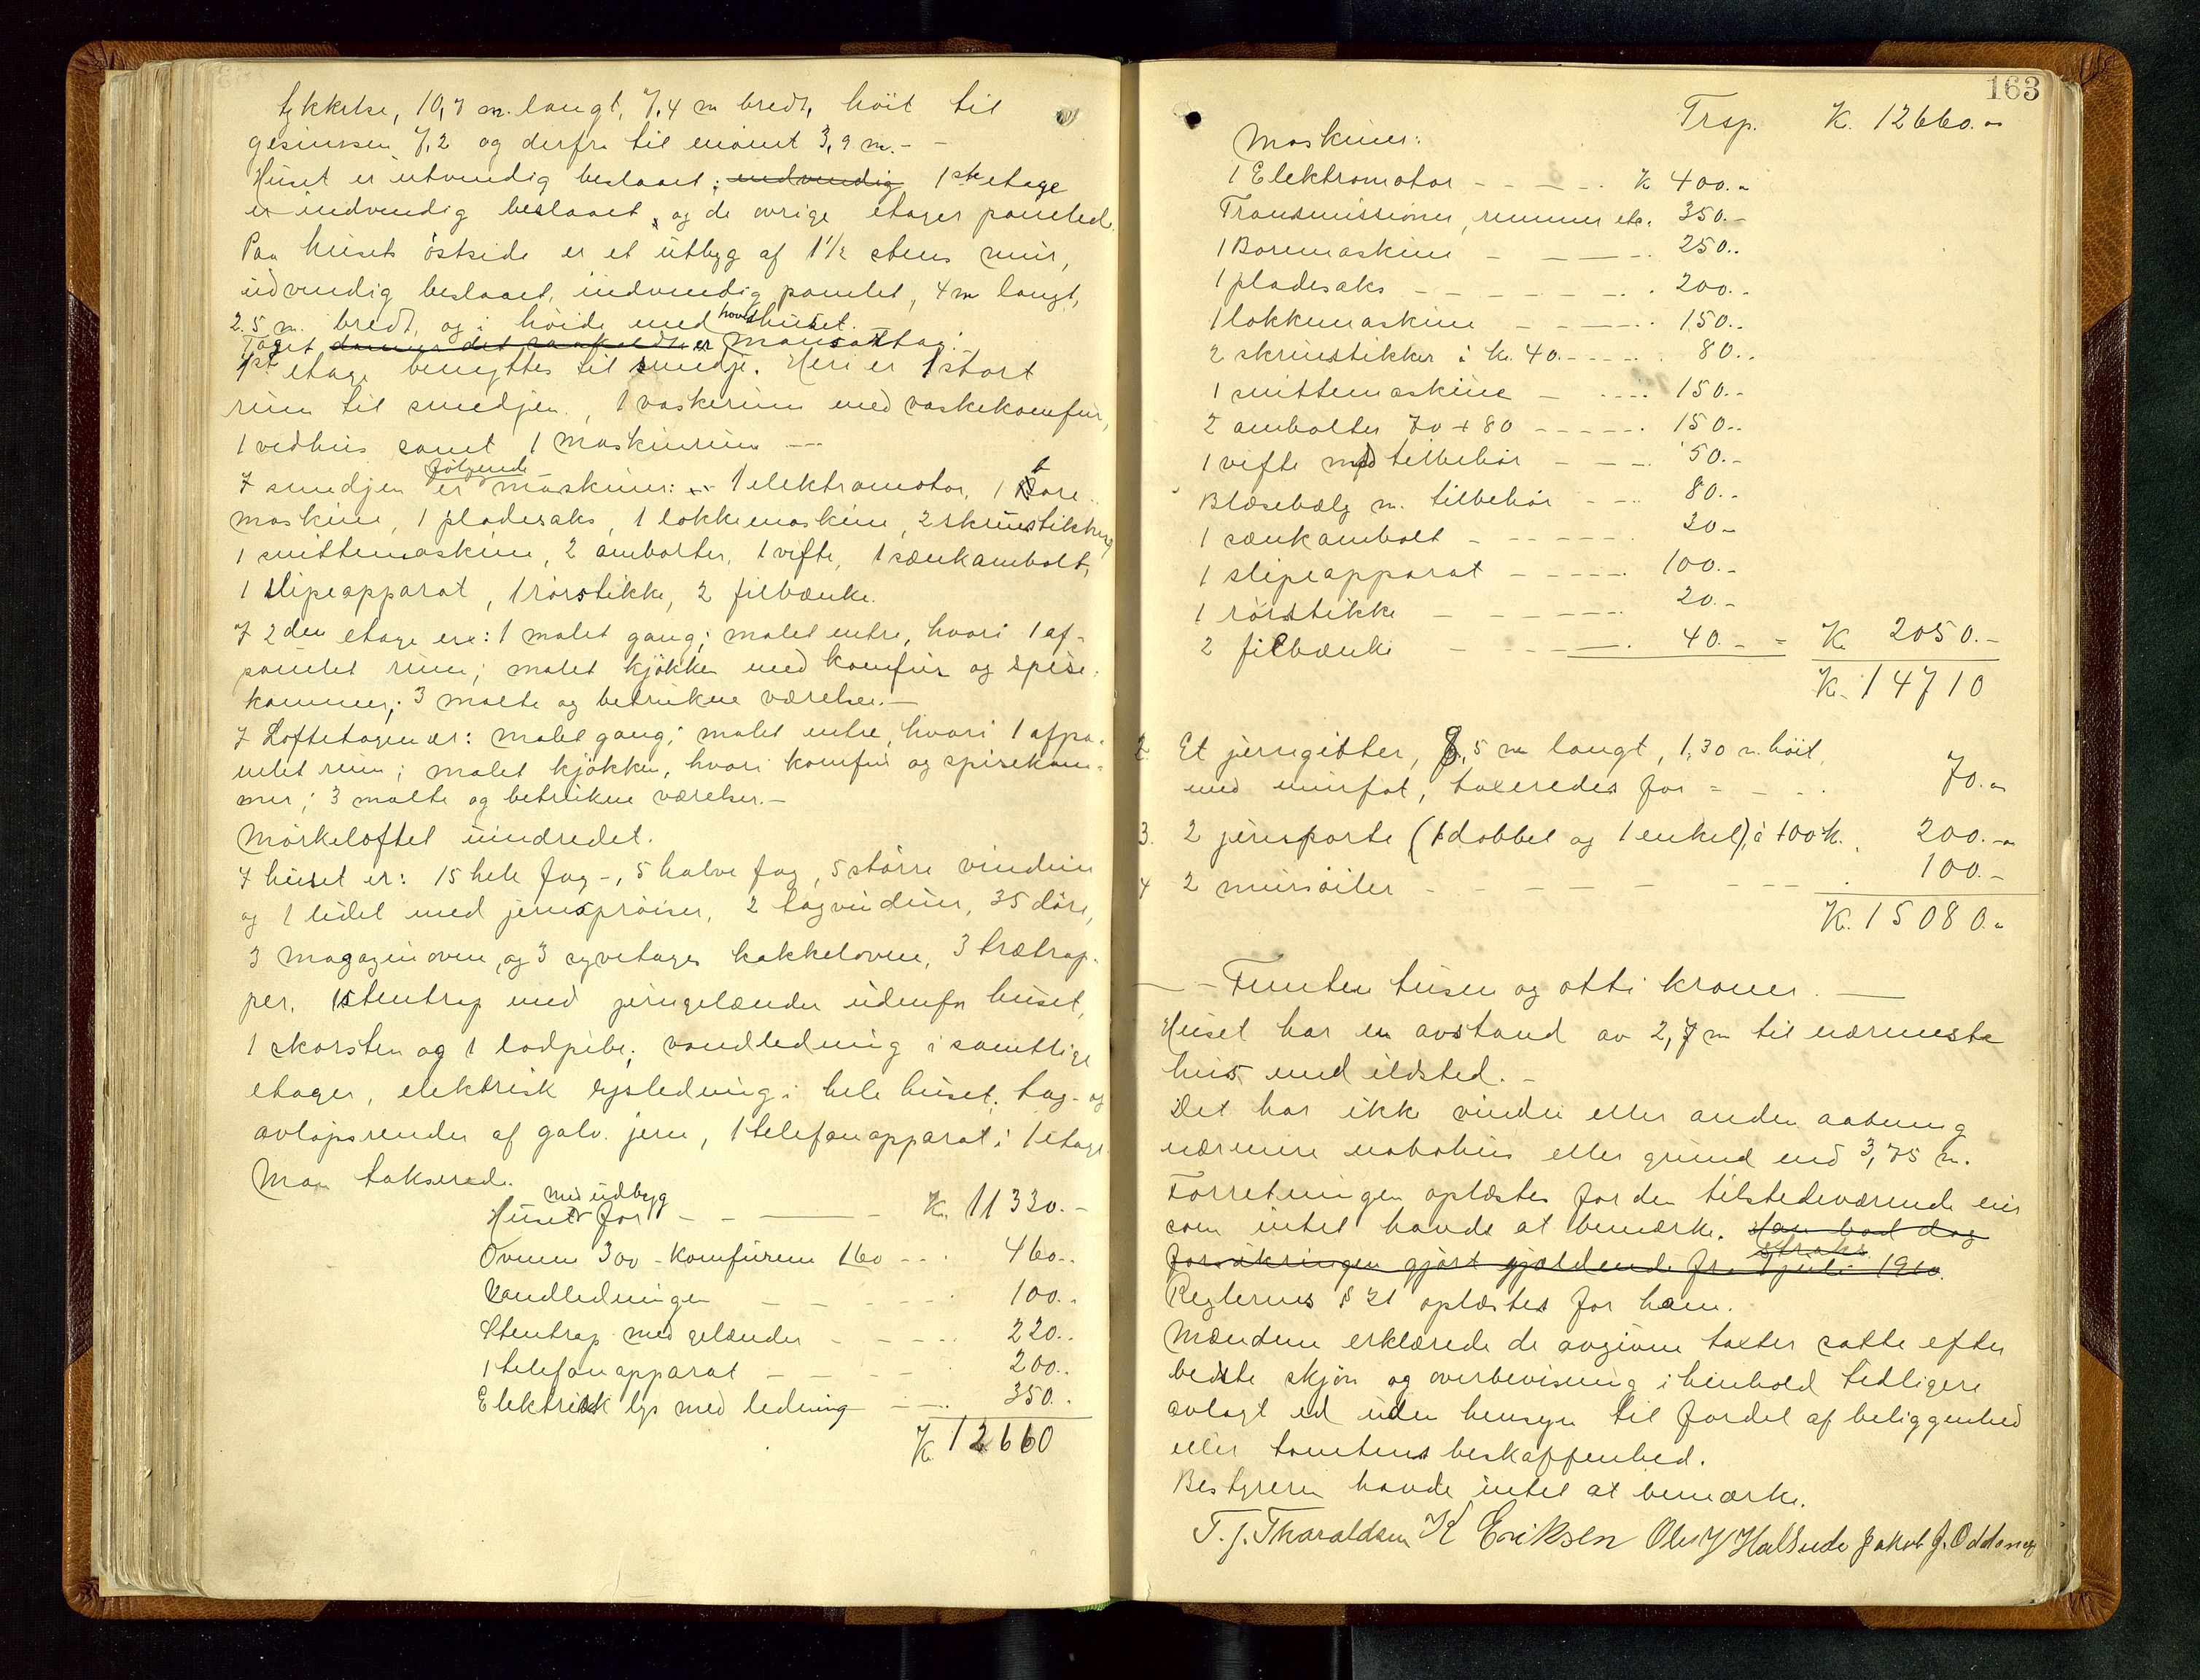 tykkelse, 10,7 m. langt, 7,4 m bredt, höit til
gesimsen 7,2 og derfra til mönet 3,9 m. -
Huset er utvendig beslaaet; indvendig 1ste etage
er indvendig beslaaet, og de övrige etager paneled.
Paa husets östside er et utbyg af 1 1/2 stens mur,
udvendig beslaaet, indvendig panelet, 4 m langt,
2.5 m. bredt, og i höide med hovedhuset. -
Taget danner det saakaldte er Mansattag. -
1ste etage benyttes til smedje. Heri er 1 stort
rum til smedjen, 1 vaskerum med vaskekomfur,
1 vedhus samt 1 maskinrum -
I smedjen er følgende maskiner: 1 elektromotor, 1 bore-
maskine, 1 pladesaks, 1 lokkemaskine, 2 skruestikker,
1 snittemaskine, 2 ambolter, 1 vifte, 1 sænkambolt,
1 slipeapparat, 1 rörstikke, 2 filbænke.
I 2den etage er: 1 malet gang; malet entre, hvori 1 af-
panelet rum; malet kjökken med komfur og spise-
kammer; 3 malte og betrukne værelser. -
I Loftetagen er: malet gang; malet entre, hvori 1 afpa-
nelet rum; malet kjökken, hvori komfur og spisekam-
mer; 3 malte og betrukne værelser. -
Mörkeloftet uindredet.
I huset er: 15 hele fag -, 5 halve fag, 5 större vinduer
og 1 lidet med jernsproiser, 2 tagvinduer, 35 döre,
3 magazinovne, og 3 syvetages kakkelovne, 3 trætrap-
per, 1 stentrap med jerngelænder udenfor huset,
1 skorsten og 1 lodpibe; vandledning i samtlige
etager, elektrisk lysledning i hele huset; tag- og
avlöpsrender af galv. jern, 1 telefonapparat i 1 etage.
Man takserede.
Huset med udbyg for - - K. 11330.-
Ovnene 300 - Komfurene 160 - - 460..
Vandledningen - - - 100..
Stentrap med gelænder - - - 220..
1 telefonapparat - - - 200..
Elektrisk lys med ledning - - 350..
K. 12660
163
Trsp. K. 12660.-
Maskiner:
1 Elektromotor - - - K 400.-
Transmissioner, remmer etc. 350.-
1 Boremaskine - - - 250..
1 pladesaks - - - 200..
1 lokkemaskine - - - 150..
2 skruestikker à k. 40. - - - 80..
1 snittemaskine - - - 150..
2 ambolter 70 + 80 - - - 150..
1 vifte med tilbehör - - - 50.-
Blæsebælg m. tilbehör - - 80.-
1 sænkambolt - - - 30-
1 slipeapparat - - - 100.-
1 rörstikke - - - 20.-
2 filbænke - - - 40.- - K. 2050.-
K. 14710
2. Et jerngitter, 8,5 m langt, 1,30 m. höit,
med murfot, taxeredes for - - - 70.-
3. 2 jernporte (1 dobbel og 1 enkel), à 100 K. 200.-
4 2 mursöiler - - - 100.-
K. 15080.-
- - Femten tusen og otti kroner. -
Huset har en avstand av 2,7 m til nærmeste
hus med ildsted. -
Det har ikke vindu eller anden aabning
nærmere nabohus eller grund end 3,75 m.
Forretningen oplæstes for den tilstedeværende eier
som intet havde at bemærke. Han bad dog
forsikringen gjört gjældende fra straks 1 juli 1910.
Reglernes § 21 oplæstes for ham.
Mændene erklærede de avgivne taxter satte efter
bedste skjön og overbevisning i henhold tidligere
avlagt ed uden hensyn til fordel af beliggenhed
eller tomtens beskaffenhed.
Bestyreren havde intet at bemærke.
T. J. Tharaldsen K Eriksen Ole Y Halsnede Jakob J. Oddsnes